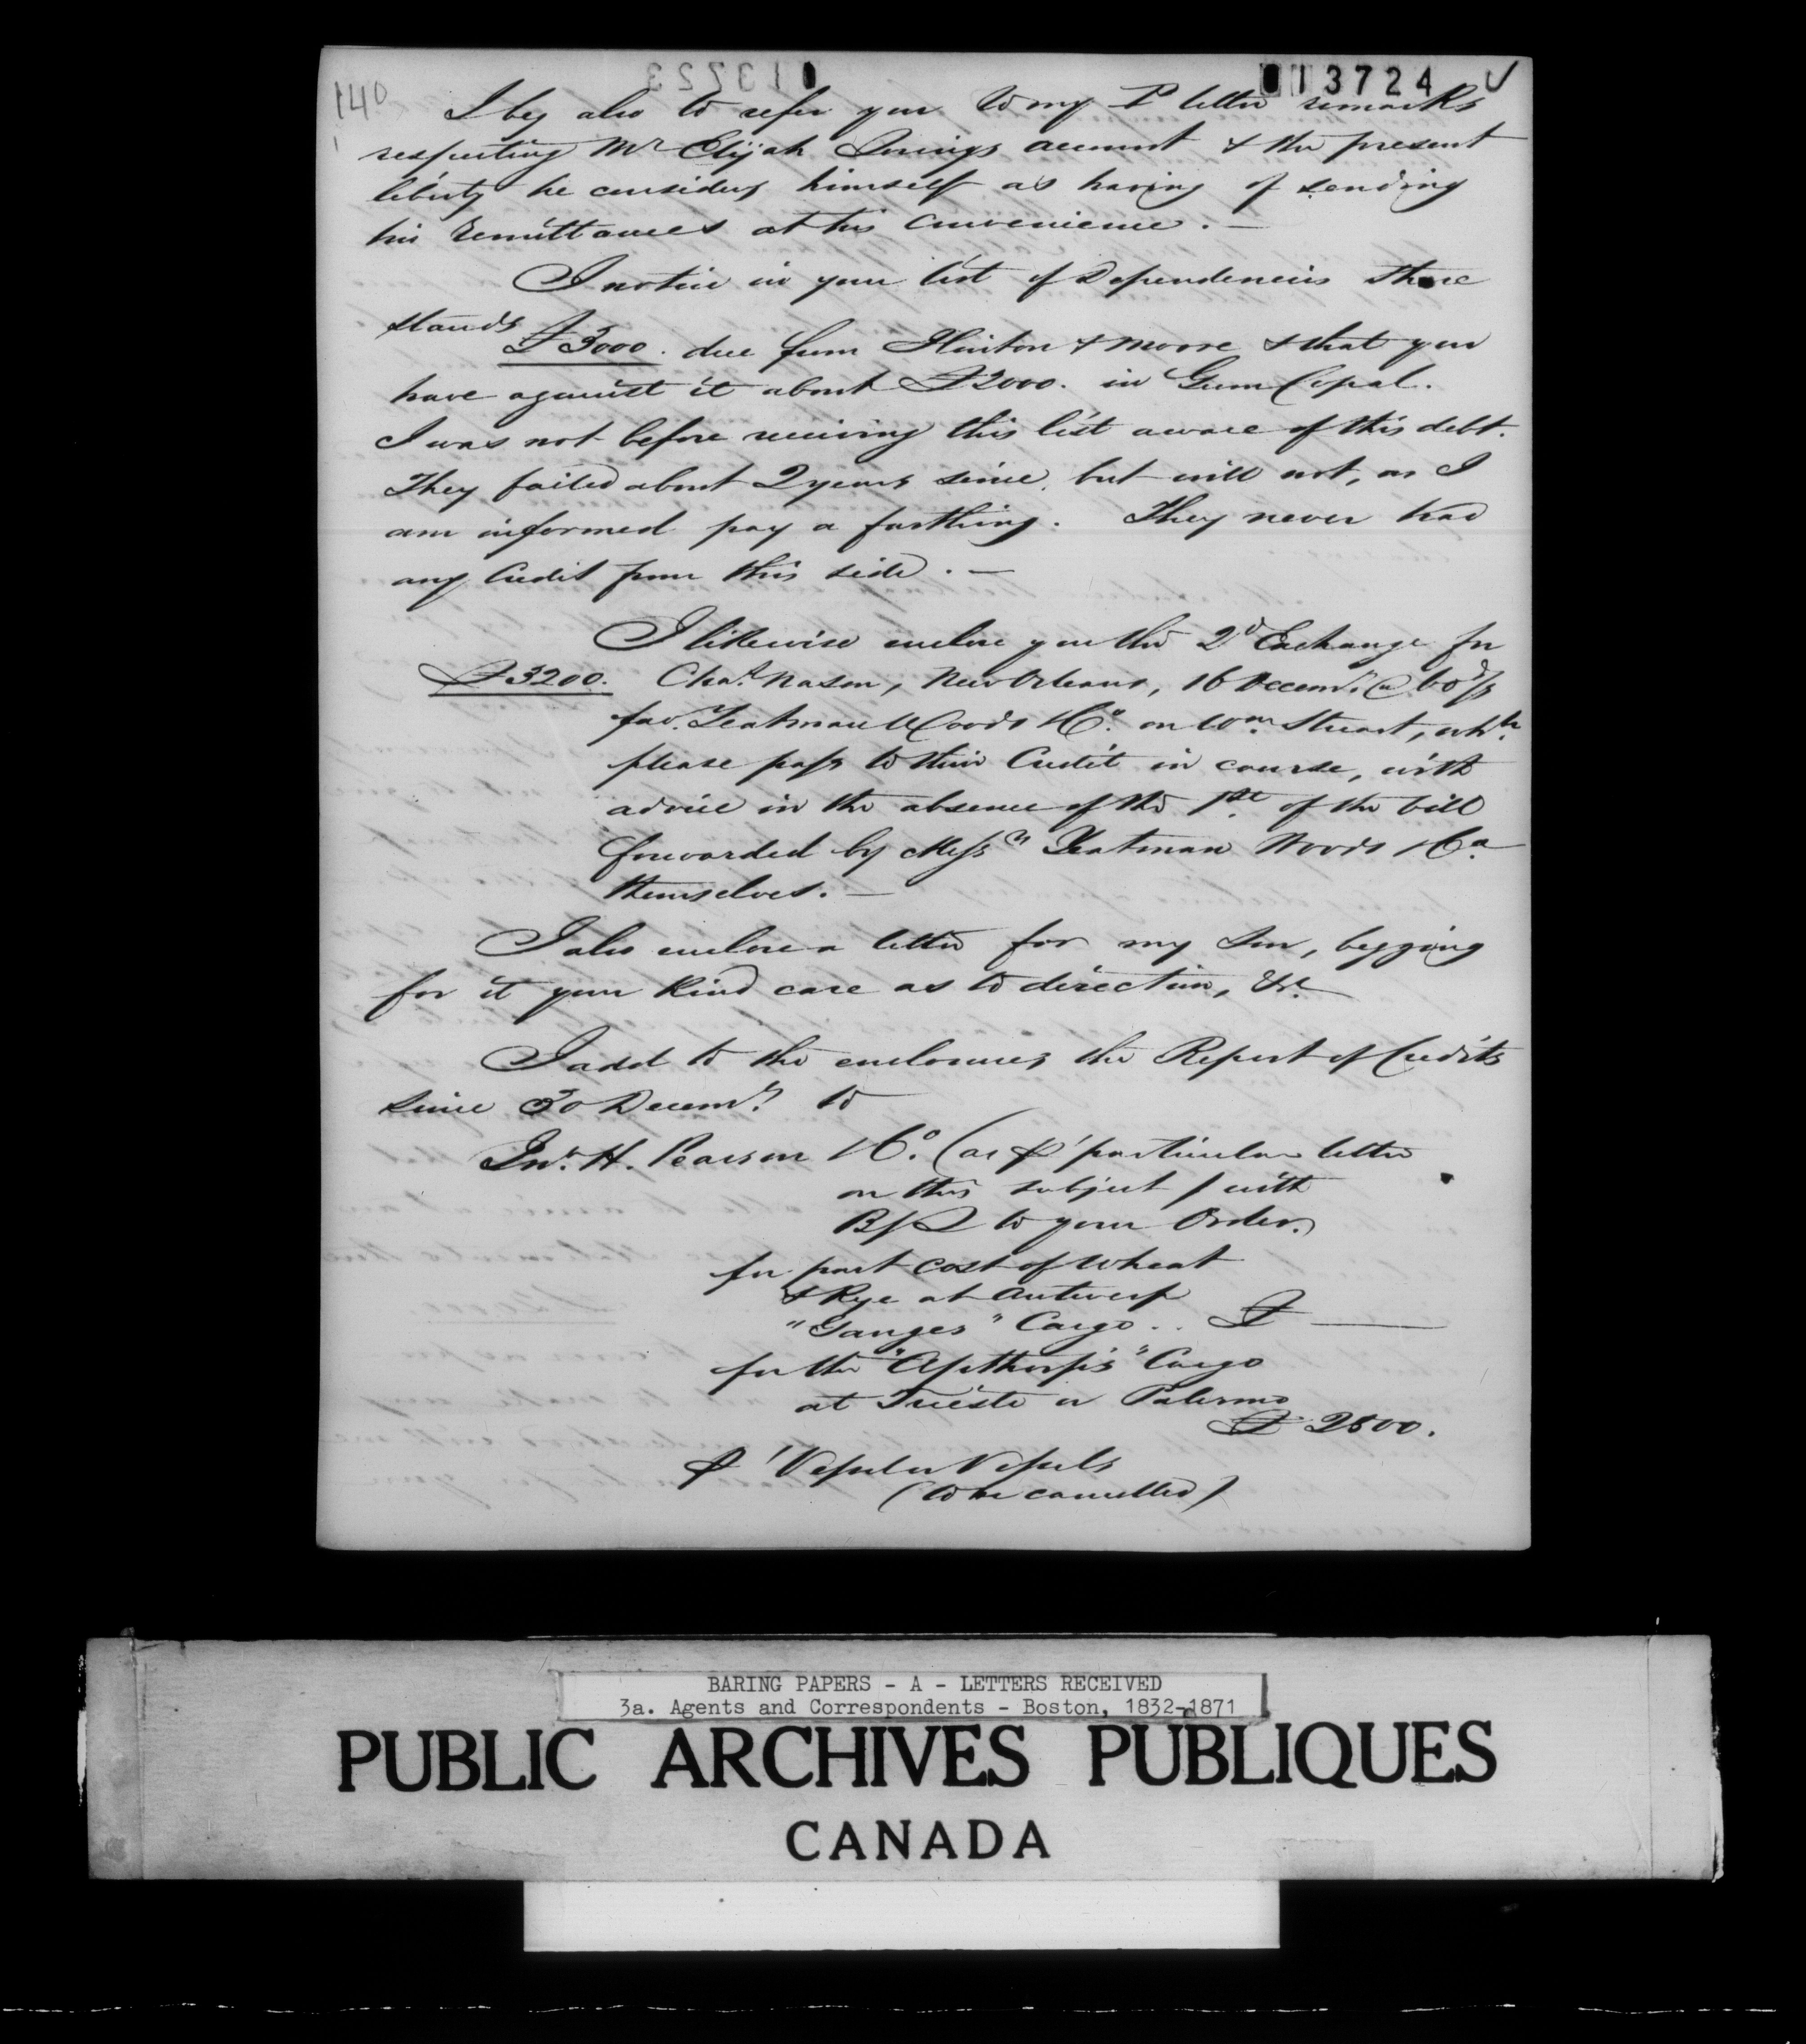 140
013723
013724
I beg also to refer you to my P letter remarks
respecting Mr Elijah Lorings account & the present
liberty he considers himself as having of sending
his remittances at his convenience. —
I notice in your list of Dependencies there
stands £3000. due from Hinton & Moore & that you
have against it about £2000. in Gum Copal.
I was not before receiving this list aware of this debt.
They failed about 2 years since, but will not, as I
am informed pay a farthing. They never had
any Credit from this side. —
I likewise enclose you the 2d Exchange for
£3200. Chas. Nason, New Orleans, 16 Decemr. @ 60 d/s
fav. Yeatman Woods & Co. on Wm. Stuart, whh.
please pass to their Credit in course, with
advice in the absence of the 1st. of the bill
forwarded by Messrs Yeatman Woods & Co.
themselves. —
I also enclose a letter for my Son, begging
for it your kind care as to direction, &c.
I add to the enclosures the Report of Credits
since 30 Decemr. to
Jno. H. Pearson & Co. (as p particular letter
on this subject) with
B/L to your Order.
for part cost of Wheat
& Rye at Antwerp
"Ganges" Cargo .. £ ——
for the "Apthorp's" Cargo
at Trieste or Palermo
£ 2500.
p Vessel or Vessels
(to be cancelled)
BARING PAPERS - A - LETTERS RECEIVED
3a. Agents and Correspondents - Boston, 1832-1871
PUBLIC ARCHIVES PUBLIQUES
CANADA